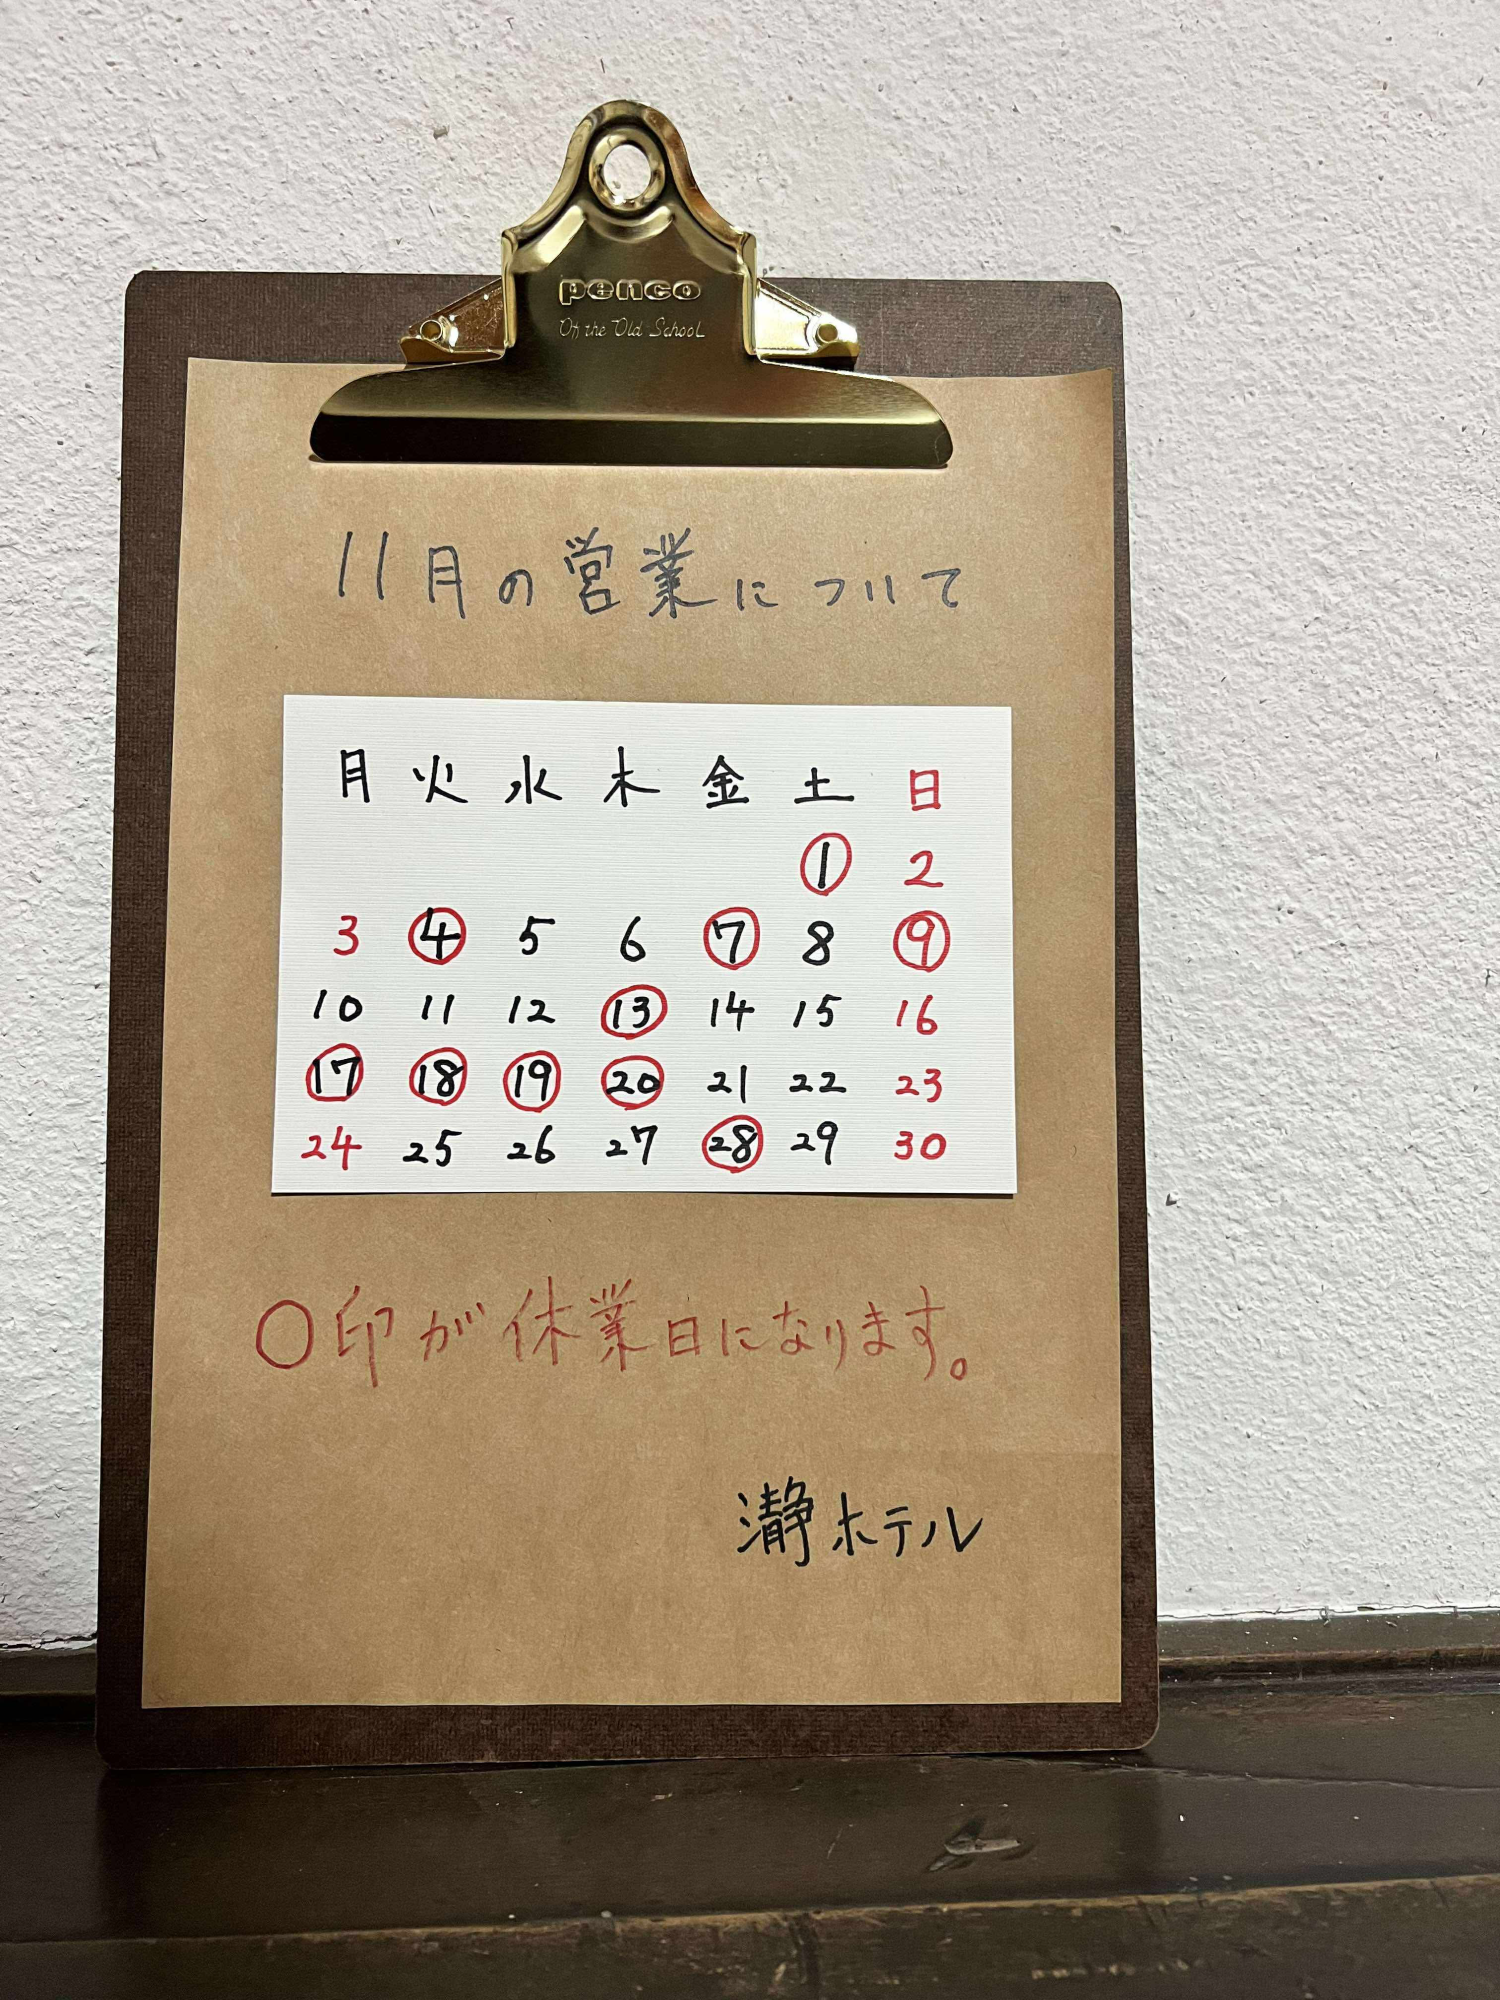 penco
Of the Old School
11月の営業について
月 火 水 木 金 土 日
1 2
3 4 5 6 7 8 9
10 11 12 13 14 15 16
17 18 19 20 21 22 23
24 25 26 27 28 29 30
○印が休業日になります。
瀞ホテル